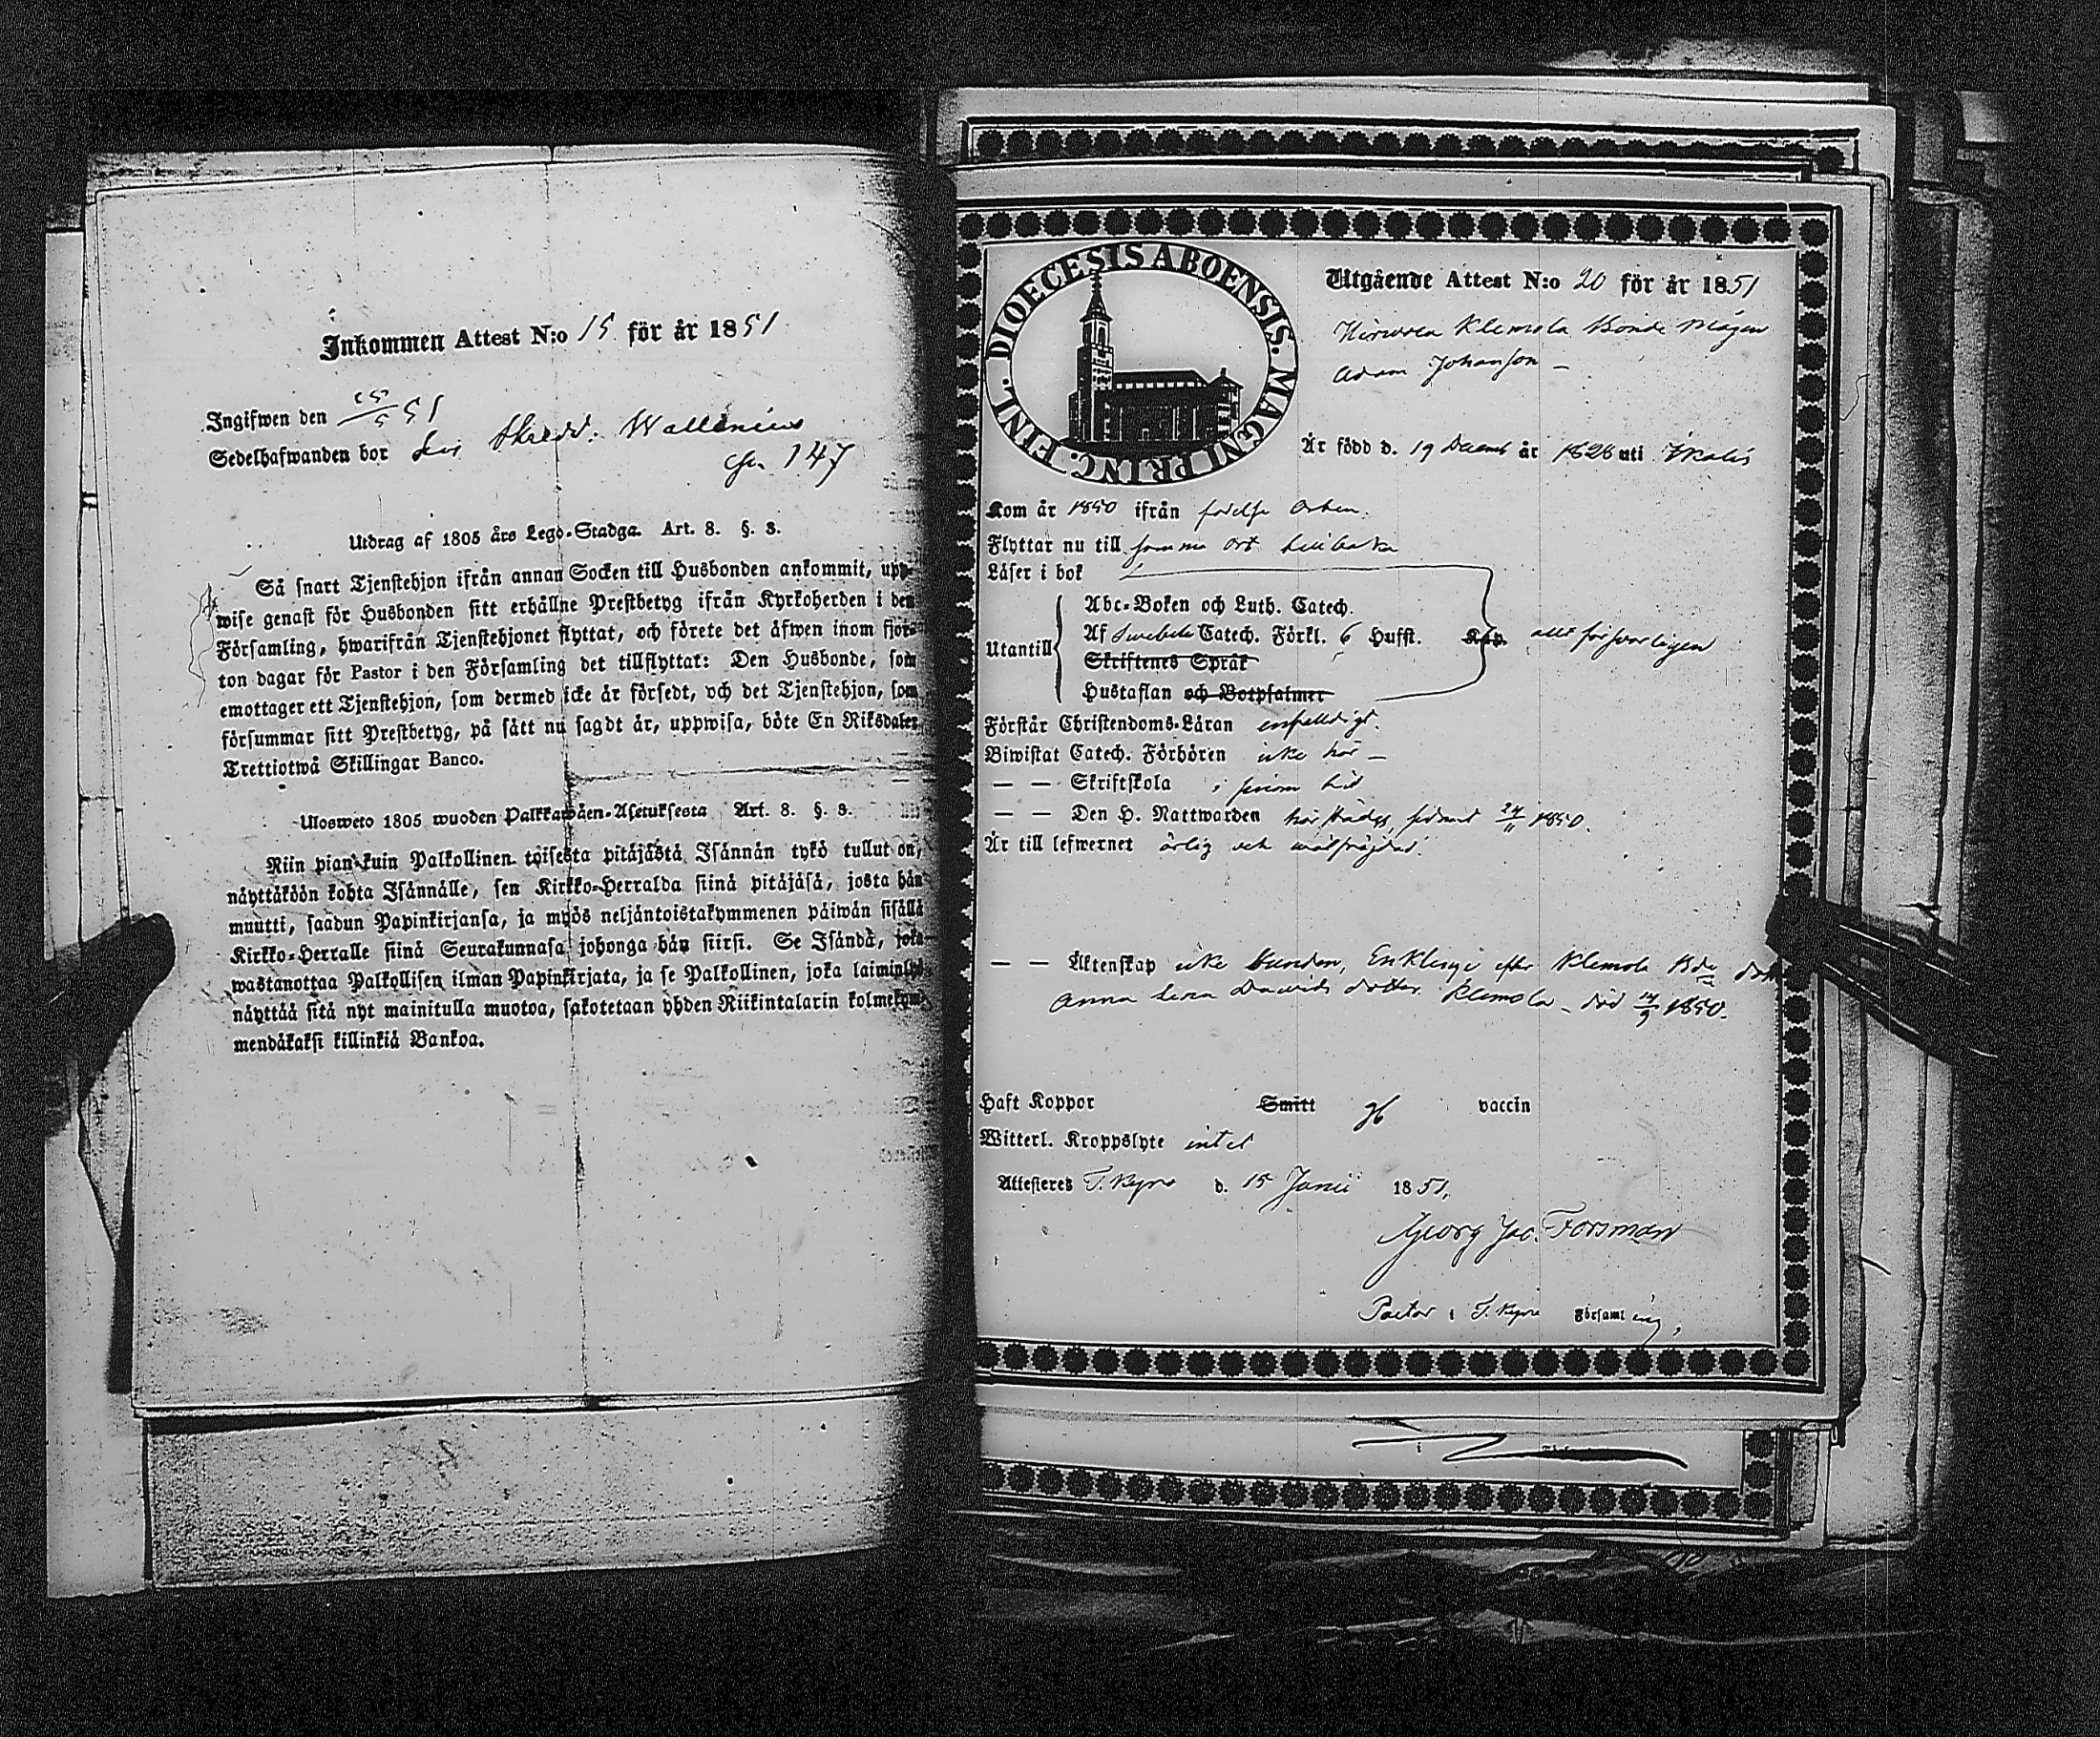 Inkommen Attest N:o 15 för år 1851
Ingifwen den 51
Sedelhafwanden bor hos Skredd: Wallenius
147
Utdrag af 1805 års Lego-Stadga. Art. 8. §. 3.
Så snart Tjenstehjon ifrån annan Socken till Husbonden ankommit, upp-
wise genast för Husbonden sitt erhållne Prestbetyg ifrån Kyrkoherden i den
Församling, hwarifrån Tjenstehjonet flyttat, och förete det äfwen inom fjor-
ton dagar för Pastor i den Församling det tillflyttat: Den Husbonde, som
emottager ett Tjenstehjon, som dermed icke är försedt, och det Tjenstehjon, som
försummar sitt Prestbetyg, på sätt nu sagdt är, uppwisa, böte En Riksdaler
Trettiotwå Skillingar Banco.
Ulosweto 1805 wuoden Palkkawäen-Asetuksesta Art. 8. §. 3.
Niin pian kuin Palkollinen toisesta pitäjästä Isännän tykö tullut on,
näyttäköön kohta Isännälle, sen Kirkko-Herralda siinä pitäjäsä, josta hän
muutti, saadun Papinkirjansa, ja myös neljäntoistakymmenen päiwän sisällä
Kirkko-Herralle siinä Seurakunnasa johonga hän siirsi. Se Isändä, joka
wastanottaa Palkollisen ilman Papinkirjata, ja se Palkollinen, joka laiminlyö
näyttää sitä nyt mainitulla muotoa, sakotetaan yhden Riikintalarin kolmekym-
mendäkaksi killinkiä Bankoa.
DIOECESIS ABOENSIS. MAGNI PRINC. FINL.
Utgående Attest N:o 20 för år 1851
Hirvola Klemola Bonde Mågen
Adam Johansson –
Är född d. 19 Decemb år 1828 uti Ikalis
Kom år 1850 ifrån födelse Orten.
Flyttar nu till samma Ort tillbaka
Läser i bok
Abc-Boken och Luth. Catech.
Utantill Af Svebelii Catech. Förkl. 6 Hufst. Kap. allt försvarligen
Skriftenes Språk
Hustaflan och Botpsalmer
Förstår Christendoms-Läran enfalldigt.
Biwistat Catech. Förhören icke här –
— — Skriftskola ;
— — Den H. Nattwarden här städes, sednast 24/11 1850.
Är till lefwernet ärlig och wälfräjdad.
— — Äktenskap icke bunden, Enkling efter Klemola Bde dotter
Anna Lisa Davids dotter Klemola – död 14/9 1850.
Haft Koppor Smitt vaccin
Witterl. Kroppslyte intet
Attesteres T. Kyro d. 15 Junii 1851.
Georg Jac. Forsman
Pastor i T. Kyro Församling,